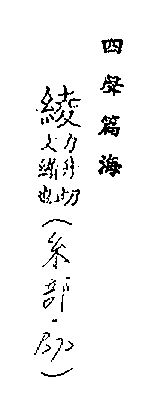 四聲篇海
綾力升切文繒也(糸部·